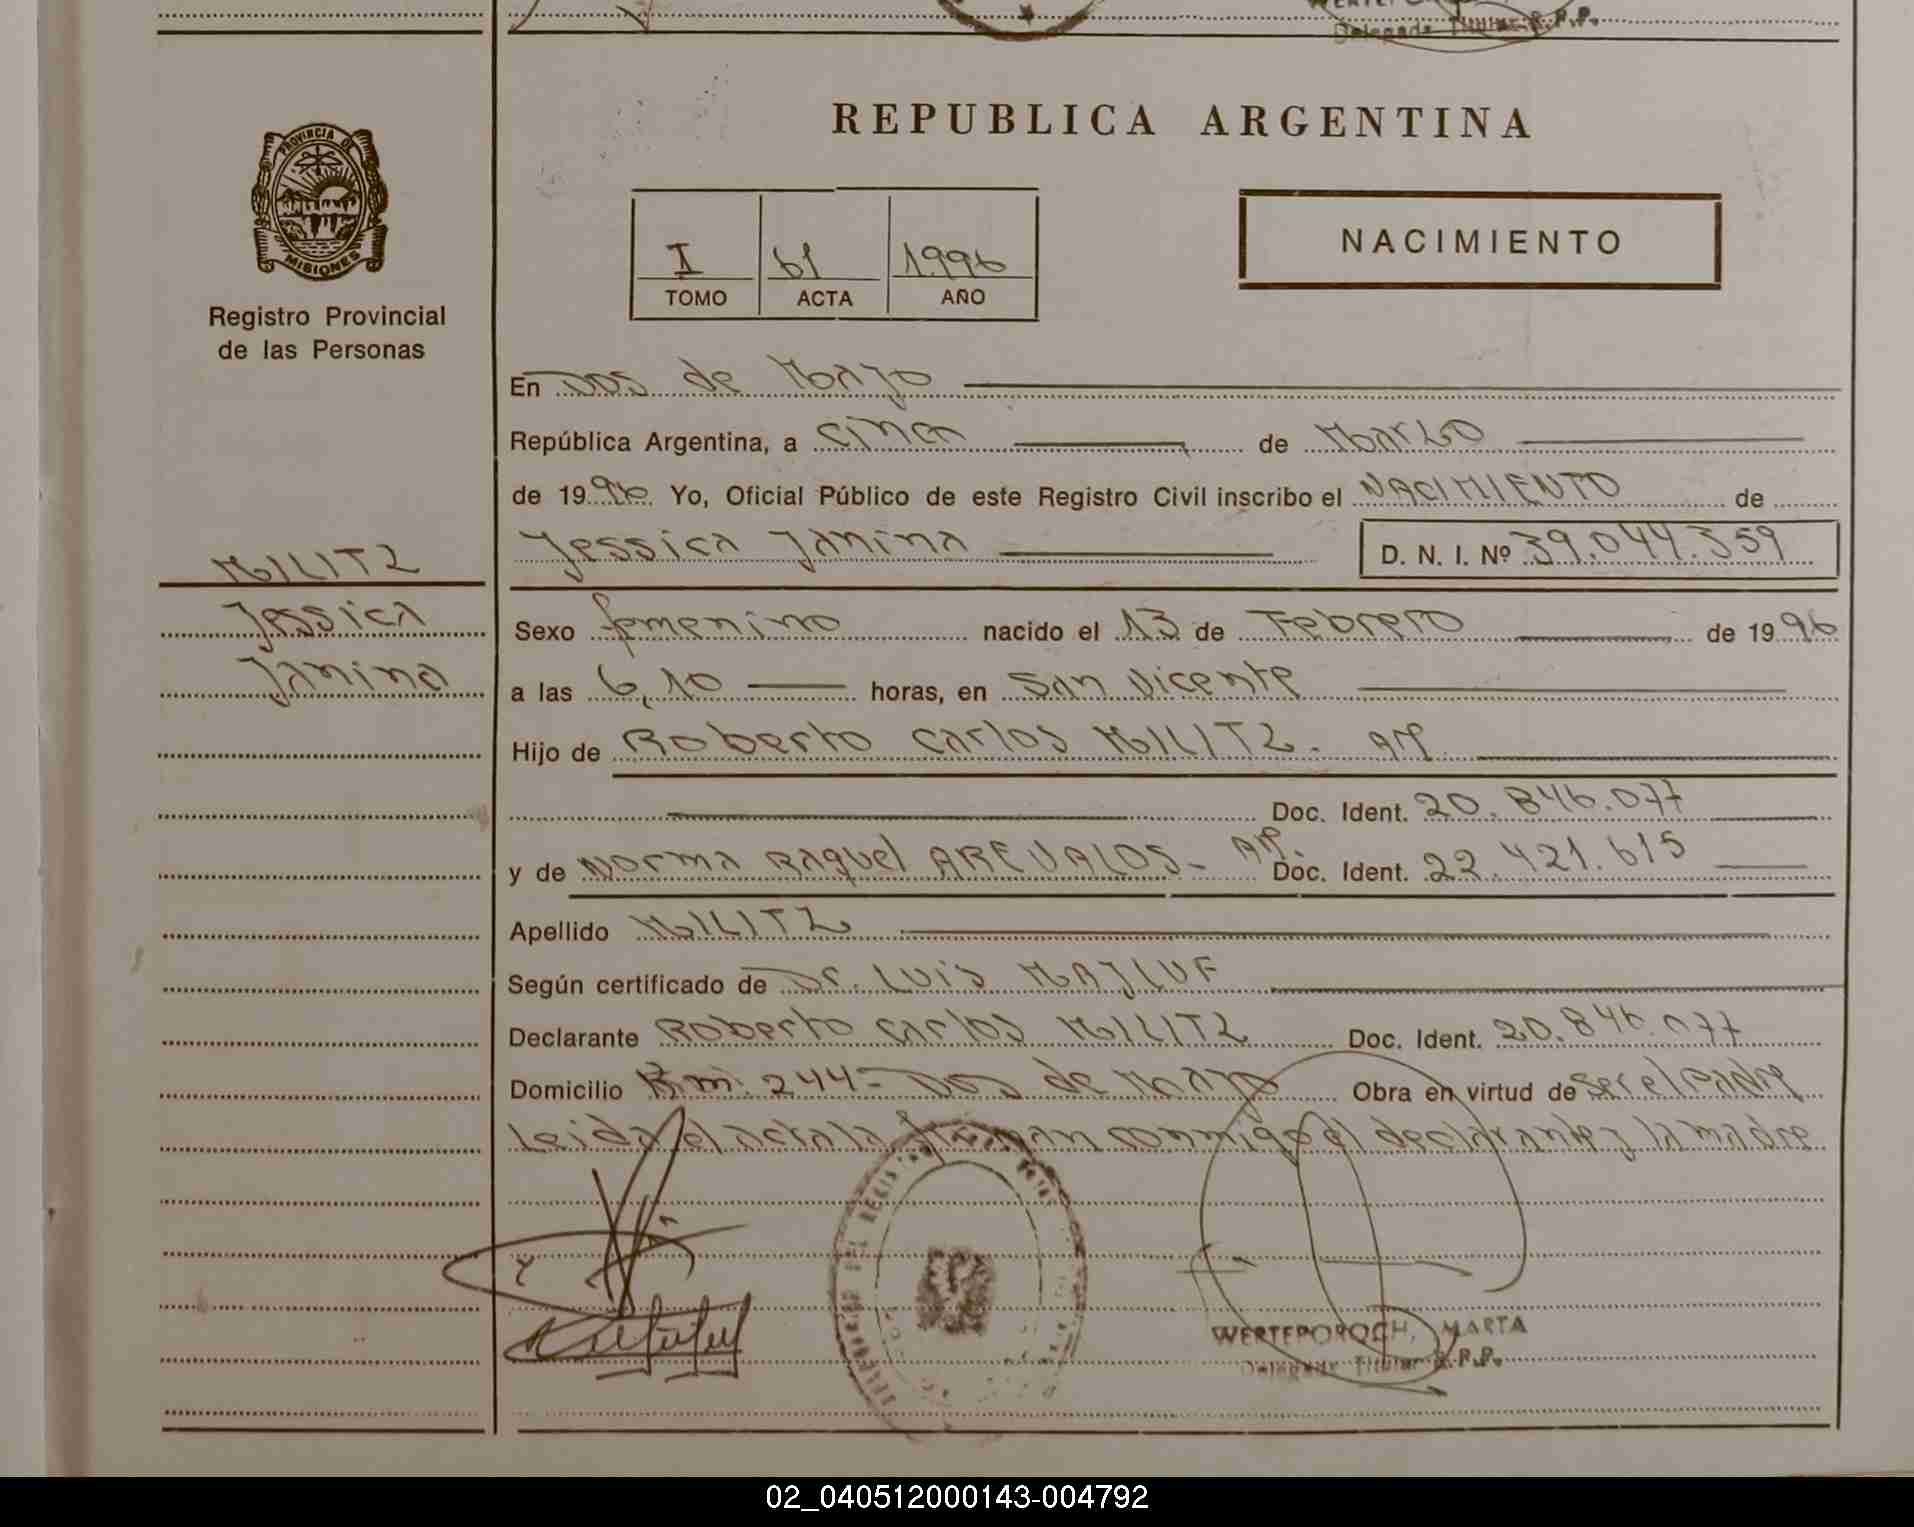 Delegada Titular R.P.P.
REPUBLICA ARGENTINA
PROVINCIA DE
MISIONES
Registro Provincial
de las Personas
I 61 1996
TOMO ACTA AÑO
NACIMIENTO
En Dos de Mayo
República Argentina, a cinco de Marzo
de 1996 Yo, Oficial Público de este Registro Civil inscribo el NACIMIENTO de
Jessica Janina D. N. I. Nº 39.044.359
MILITZ
Jessica
Janina
Sexo femenino nacido el 13 de Febrero de 1996
a las 6,10 horas, en San Vicente
Hijo de Roberto Carlos MILITZ. Arg.
Doc. Ident. 20.846.077
y de Norma Raquel AREVALOS- Arg. Doc. Ident. 22.421.615
Apellido MILITZ
Según certificado de Dr. LUIS MAJLUF
Declarante Roberto Carlos MILITZ Doc. Ident. 20.846.077
Domicilio Km. 244- Dos de Mayo Obra en virtud de ser el padre
Leida el acta la firman conmigo el declarante y la madre
WERTEPOROCH, MARTA
Delegada Titular R.P.P.
02_040512000143-004792